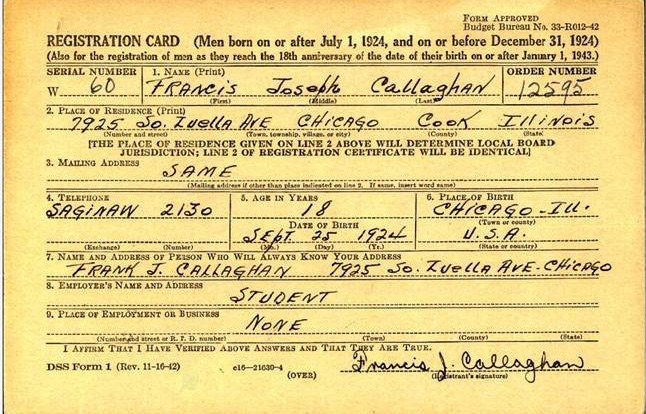 FORM APPROVED
BUDGET BUREAU NO. 33-R012-42
REGISTRATION CARD (Men born on or after July 1, 1924, and on or before December 31, 1924)
(Also for the registration of men as they reach the 18th anniversary of the date of their birth on or after January 1, 1943.)
SERIAL NUMBER 1. NAME (Print) ORDER NUMBER
W 60 FRANCIS JOSEPH CALLAGHAN 12592
(First) (Middle) (Last)
2. PLACE OF RESIDENCE (Print)
7925 SO. LUELLA AVE CHICAGO COOK ILLINOIS
(Number and street) (Town, township, village, or city) (County) (State)
[THE PLACE OF RESIDENCE GIVEN ON LINE 2 ABOVE WILL DETERMINE LOCAL BOARD
JURISDICTION; LINE 2 OF REGISTRATION CERTIFICATE WILL BE IDENTICAL]
3. MAILING ADDRESS
SAME
(Mailing address if other than place indicated on line 2. If same, insert word same)
4. TELEPHONE 5. AGE IN YEARS 6. PLACE OF BIRTH
SAGINAW 2130 18 CHICAGO - ILL.
DATE OF BIRTH (Town or county)
SEPT. 25 1924 U.S.A.
(Exchange) (Number) (Mo.) (Day) (Yr.) (State or country)
7. NAME AND ADDRESS OF PERSON WHO WILL ALWAYS KNOW YOUR ADDRESS
FRANK J. CALLAGHAN 7925 SO. LUELLA AVE - CHICAGO
8. EMPLOYER'S NAME AND ADDRESS
STUDENT
9. PLACE OF EMPLOYMENT OR BUSINESS
NONE
(Number and street or R. F. D. number) (Town) (County) (State)
I AFFIRM THAT I HAVE VERIFIED ABOVE ANSWERS AND THAT THEY ARE TRUE.
Francis J. Callaghan
DSS Form 1 (Rev. 11-16-42) c16-21630-4 (Registrant's signature)
(OVER)